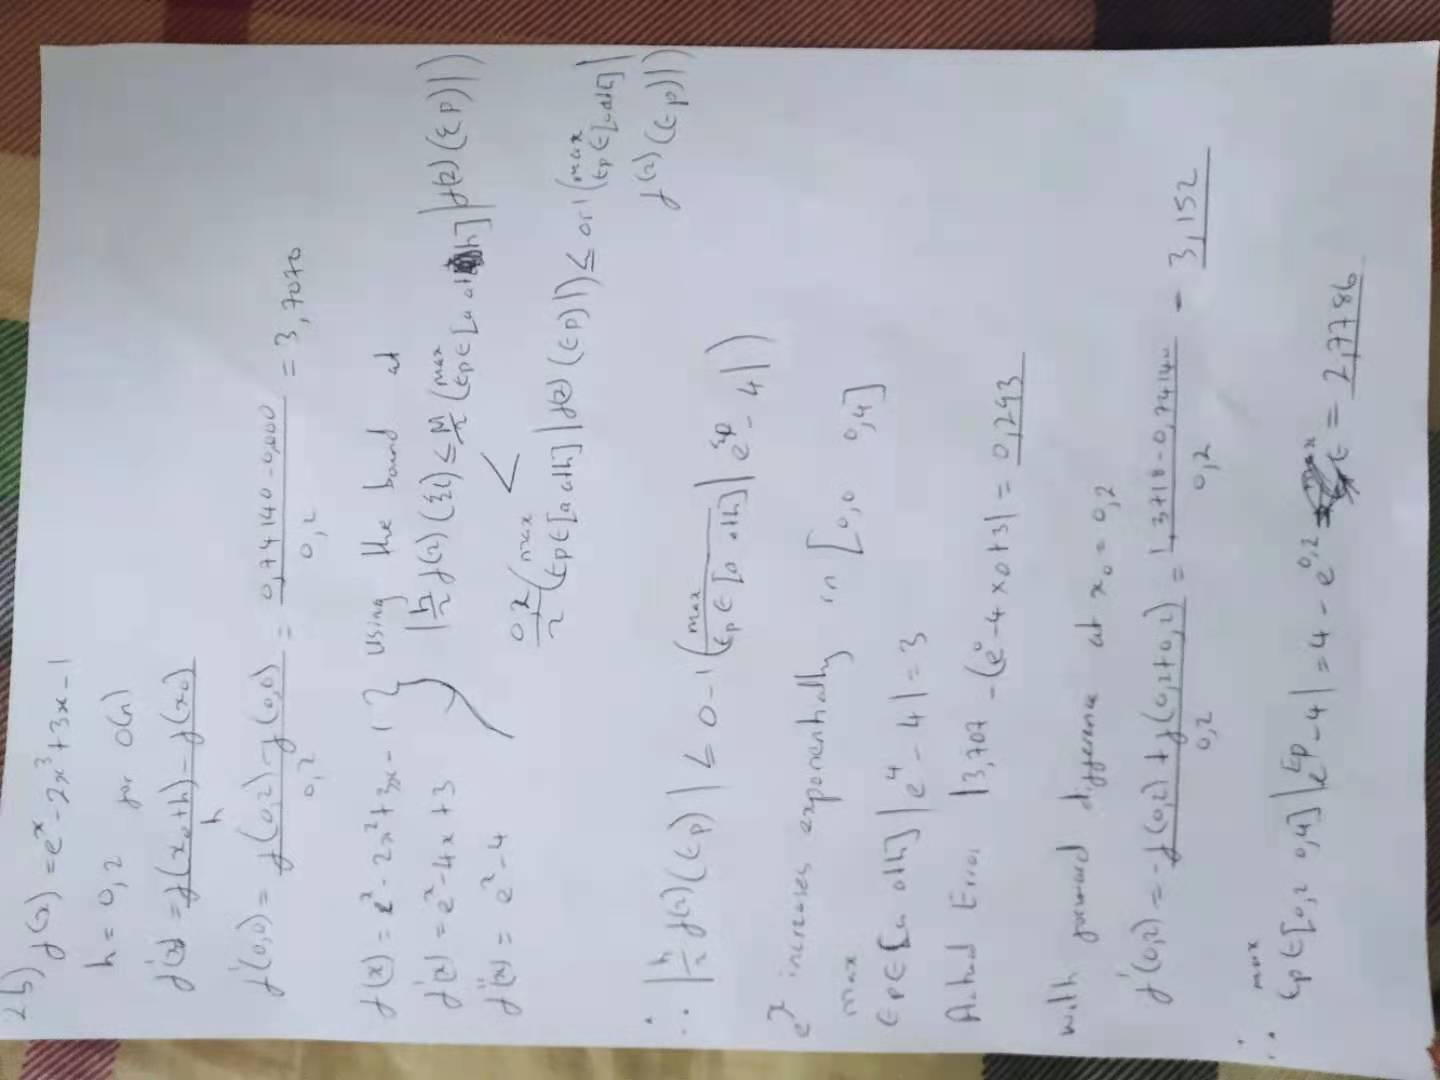 2b) f(x) = e^x - 2x^3 + 3x - 1
h = 0,2 for O(h)
f'(x) = f(x0+h) - f(x0) / h
f'(0,0) = f(0,2) - f(0,0) / 0,2 = 0,74140 - 0,000 / 0,2 = 3,7070
f(x) = e^x - 2x^2 + 3x - 1 } Using the bound at
f'(x) = e^x - 4x + 3 | h/2 f(2) (ξi) ≤ M/2 ( max ξp ∈ [a a+h] | f(2) (ξp) | )
f''(x) = e^x - 4
0,2/2 ( max ξp ∈ [a a+h] | f(2) (ξp) | ) ≤ 0,1 ( max ξp ∈ [a a+h] |
f(2) (ξp) | )
∴ | h/2 f(2) (ξp) | ≤ 0-1 ( max ξp ∈ [a a+h] | e^ξp - 4 | )
e^x increases exponentially in [0,0 0,4]
max ξp ∈ [a a+h] | e^4 - 4 | = 3
Actual Error | 3,707 - (e^0 - 4 x 0 + 3 | = 0,293
With forward difference at x0 = 0,2
f'(0,2) = -f(0,2) + f(0,2+0,2) / 0,2 = 1,3718 - 0,74140 / 0,2 - 3,152
∴ max ξp ∈ [0,2 0,4] | e^ξp - 4 | = 4 - e^0,2 = 2,7786